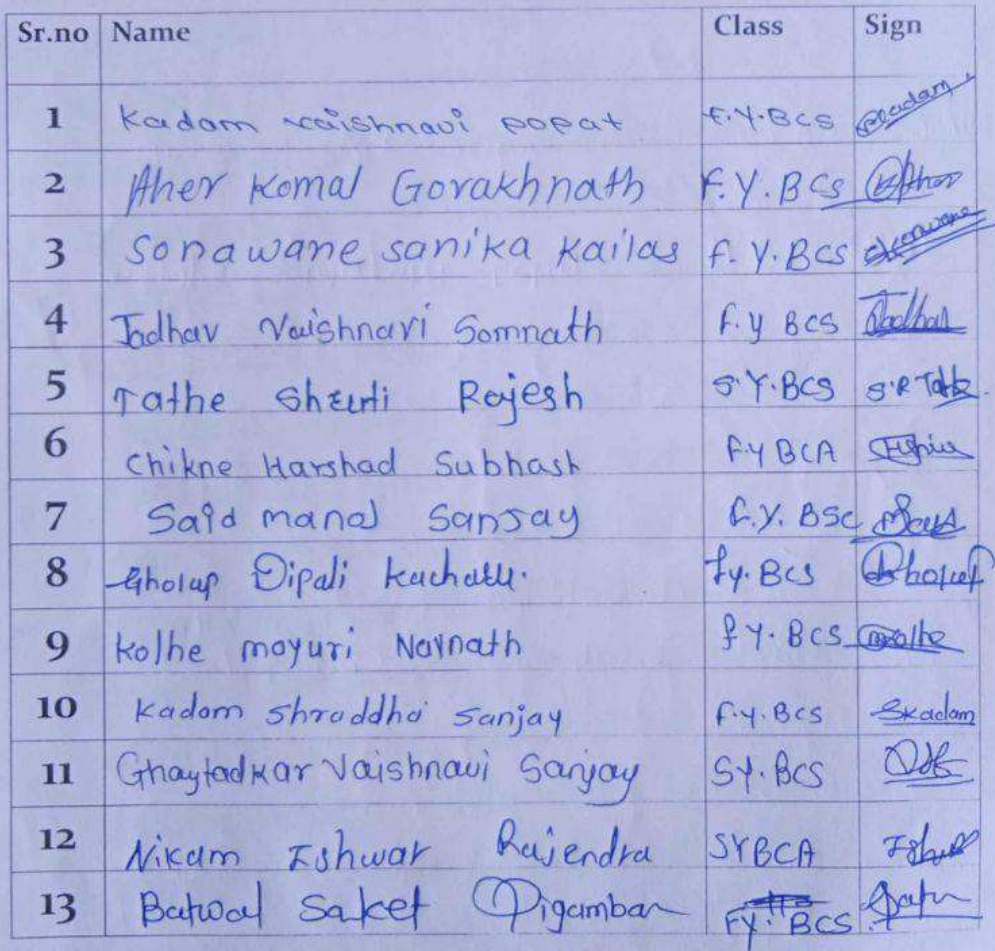 Sr.no Name Class Sign
1 Kadam vaishnavi popat F.Y.BCS PKadam.
2 Aher Komal Gorakhnath F.Y.BCS KAher
3 Sonawane sanika Kailas F.Y.BCS
4 Jadhav Vaishnavi Somnath F.y BCS Jadhav
5 Tathe Shruti Rajesh S.Y.BCS S.R Tathe.
6 Chikne Harshad Subhash F.Y BCA
7 Said manal Sanjay F.Y. BSc
8 Gholap Dipali Kacharu. Fy.BCS
9 Kolhe mayuri Navnath F Y.BCS
10 Kadam Shraddha Sanjay F.Y.BCS Skadam
11 Ghaytadkar Vaishnavi Sanjay SY.BCS
12 Nikam Ishwar Rajendra SYBCA
13 Batwal Saket Digambar FY.BCS